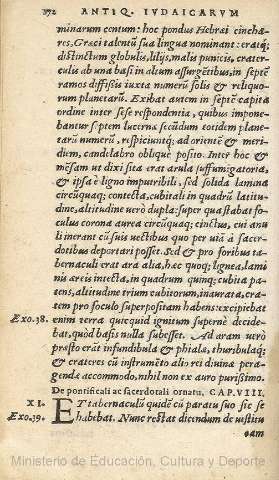 192 ANTIQ. IVDAICARVM
minarum centum: hoc pondus Hebræi cincha-
res, Græci talentũ sua lingua nominant: eratq́;
distinctum globulis, lilijs, malis punicis, crater-
culis ab una basi in altum assurgẽtibus, in septẽ
ramos diffissis iuxta numerũ solis & reliquo-
rum planetarũ. Exibat autem in septẽ capita
ordine inter sese respondentia, quibus impone-
bantur septem lucernæ secũdum totidem plane-
tarũ numerũ, respiciuntq́; ad orientẽ & meri-
diem, candelabro obliquè posito. Inter hoc &
mẽsam ut dixi sita erat arula suffumigatoria,
& ipsa è ligno imputribili, sed solida lamina
circũquaq; contecta, cubitali in quadrũ latitu-
dine, altitudine uerò dupla: super quã stabat fo-
culus corona aurea circũquaq; cinctus, cui anu
li inerant cũ suis uectibus quo per uiã à sacer-
dotibus deportari posset. Sed & pro foribus ta-
bernaculi erat ara alia, hæc quoq; lignea, lami
nis æreis intecta, in quadrum quinq; cubita pa-
tens, altitudine trium cubitorum, inaurata, cra-
tem pro foculo superpositam habens: excipiebat
Exo.38. enim terra quicquid ignitum supernè decide-
bat, quòd basis nulla subesset. Ad aram uerò
præstò erãt infundibula & phialæ, thuribulaq́;
& crateres cũ instrumẽto alio rei diuinæ pera-
gendæ accommodo, nihil non ex auro purissimo.
De pontificali ac sacerdotali ornatu, CAP. VIII,
XI. ET tabernaculũ quidẽ cũ paratu suo sic se
Exo.39. habebat. Nunc restat dicendum de uestitu
tam
Ministerio de Educación, Cultura y Deporte